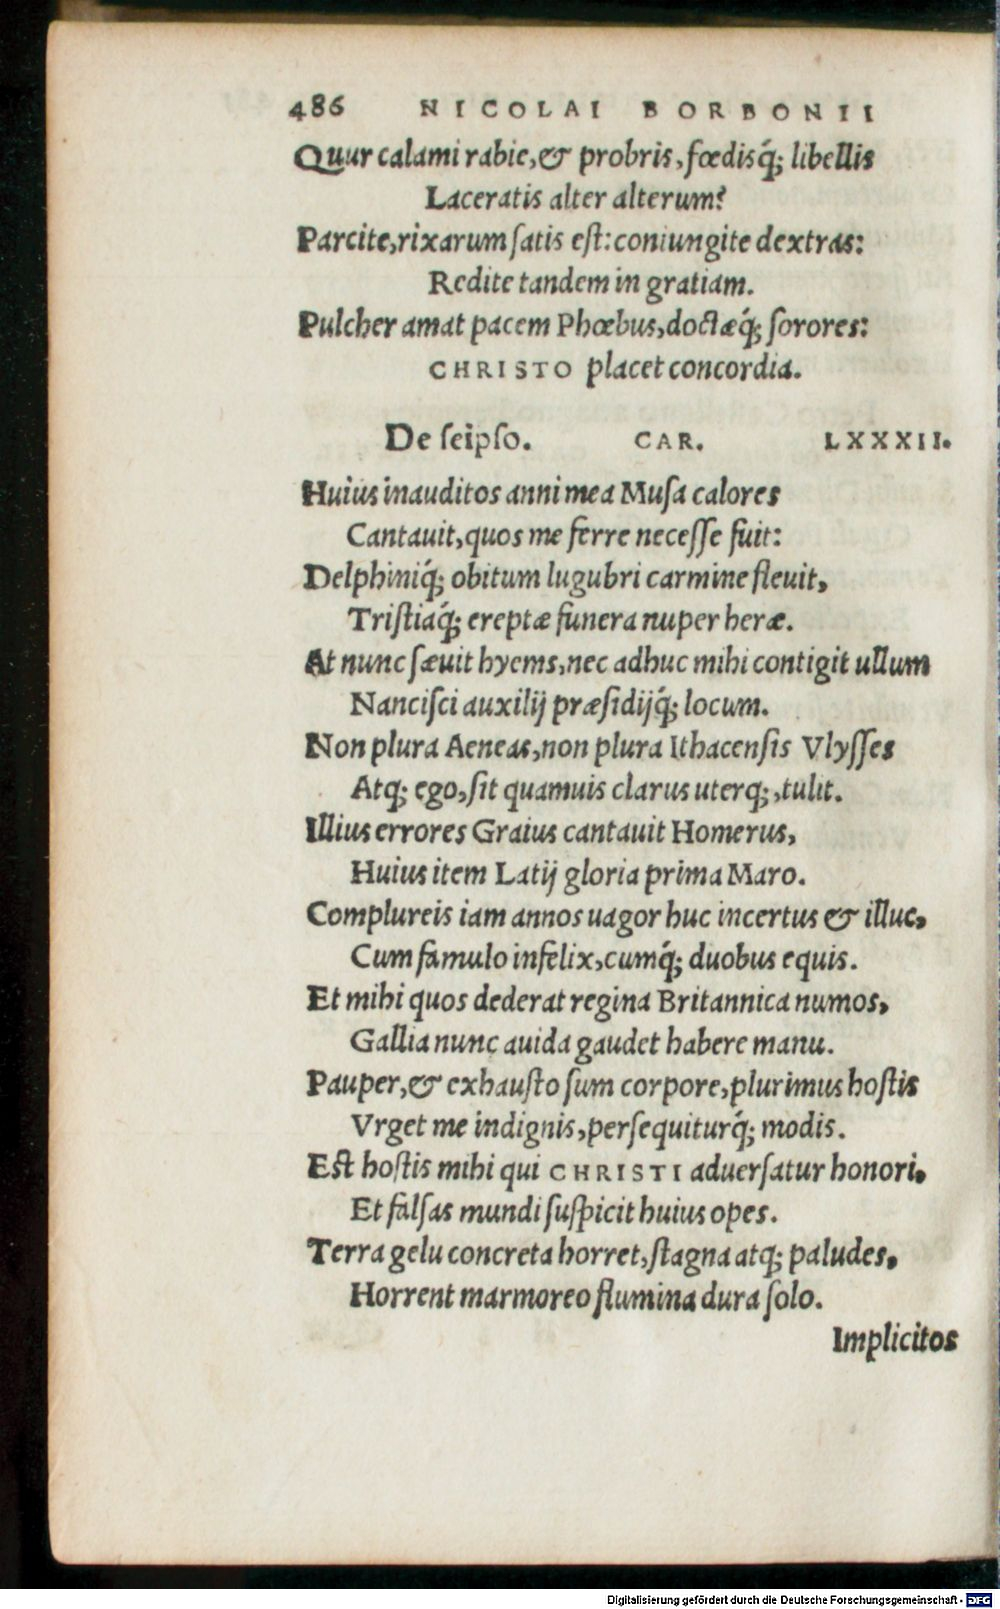 486 NICOLAI BORBONII
Quur calami rabie, & probris, fœdisq́; libellis
Laceratis alter alterum?
Parcite, rixarum ſatis eſt: coniungite dextras:
Redite tandem in gratiam.
Pulcher amat pacem Phœbus, doctæq́; ſorores:
CHRISTO placet concordia.
De ſeipſo. CAR. LXXXII.
Huius inauditos anni mea Muſa calores
Cantauit, quos me ferre neceſſe fuit:
Delphiniq́; obitum lugubri carmine fleuit,
Triſtiaq́; ereptæ funera nuper heræ.
At nunc ſæuit hyems, nec adhuc mihi contigit ullum
Nanciſci auxilij præſidijq́; locum.
Non plura Aeneas, non plura Ithacenſis Vlyſſes
Atq; ego, ſit quamuis clarus uterq;, tulit.
Illius errores Graius cantauit Homerus,
Huius item Latij gloria prima Maro.
Complureis iam annos uagor huc incertus & illuc,
Cum famulo infelix, cumq́; duobus equis.
Et mihi quos dederat regina Britannica numos,
Gallia nunc auida gaudet habere manu.
Pauper, & exhauſto ſum corpore, plurimus hoſtis
Vrget me indignis, perſequiturq́; modis.
Eſt hoſtis mihi qui CHRISTI aduerſatur honori,
Et falſas mundi ſuſpicit huius opes.
Terra gelu concreta horret, ſtagna atq; paludes,
Horrent marmoreo flumina dura ſolo.
Implicitos
Digitalisierung gefördert durch die Deutsche Forschungsgemeinschaft - DFG